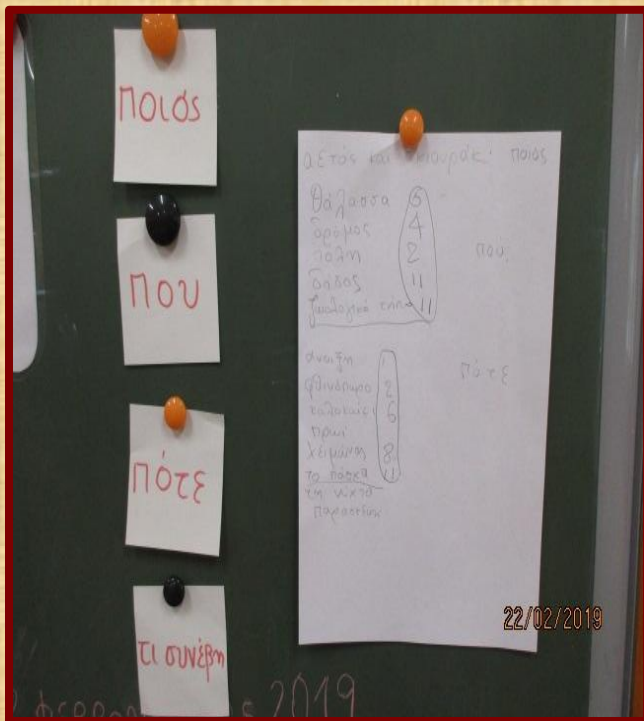 ποιός
που
πότε
τι συνέβη
αετός και ποιός
θάλασσα 6
δρόμος 4
πόλη 2
δάσος 11
ζωολογικό κήπο 11
που
πότε
άνοιξη
φθινόπωρο 2
καλοκαίρι 6
πρωί
χειμώνας 8
το πάσχα 11
τη νύχτα
Παρασκευή
22/02/2019
2019